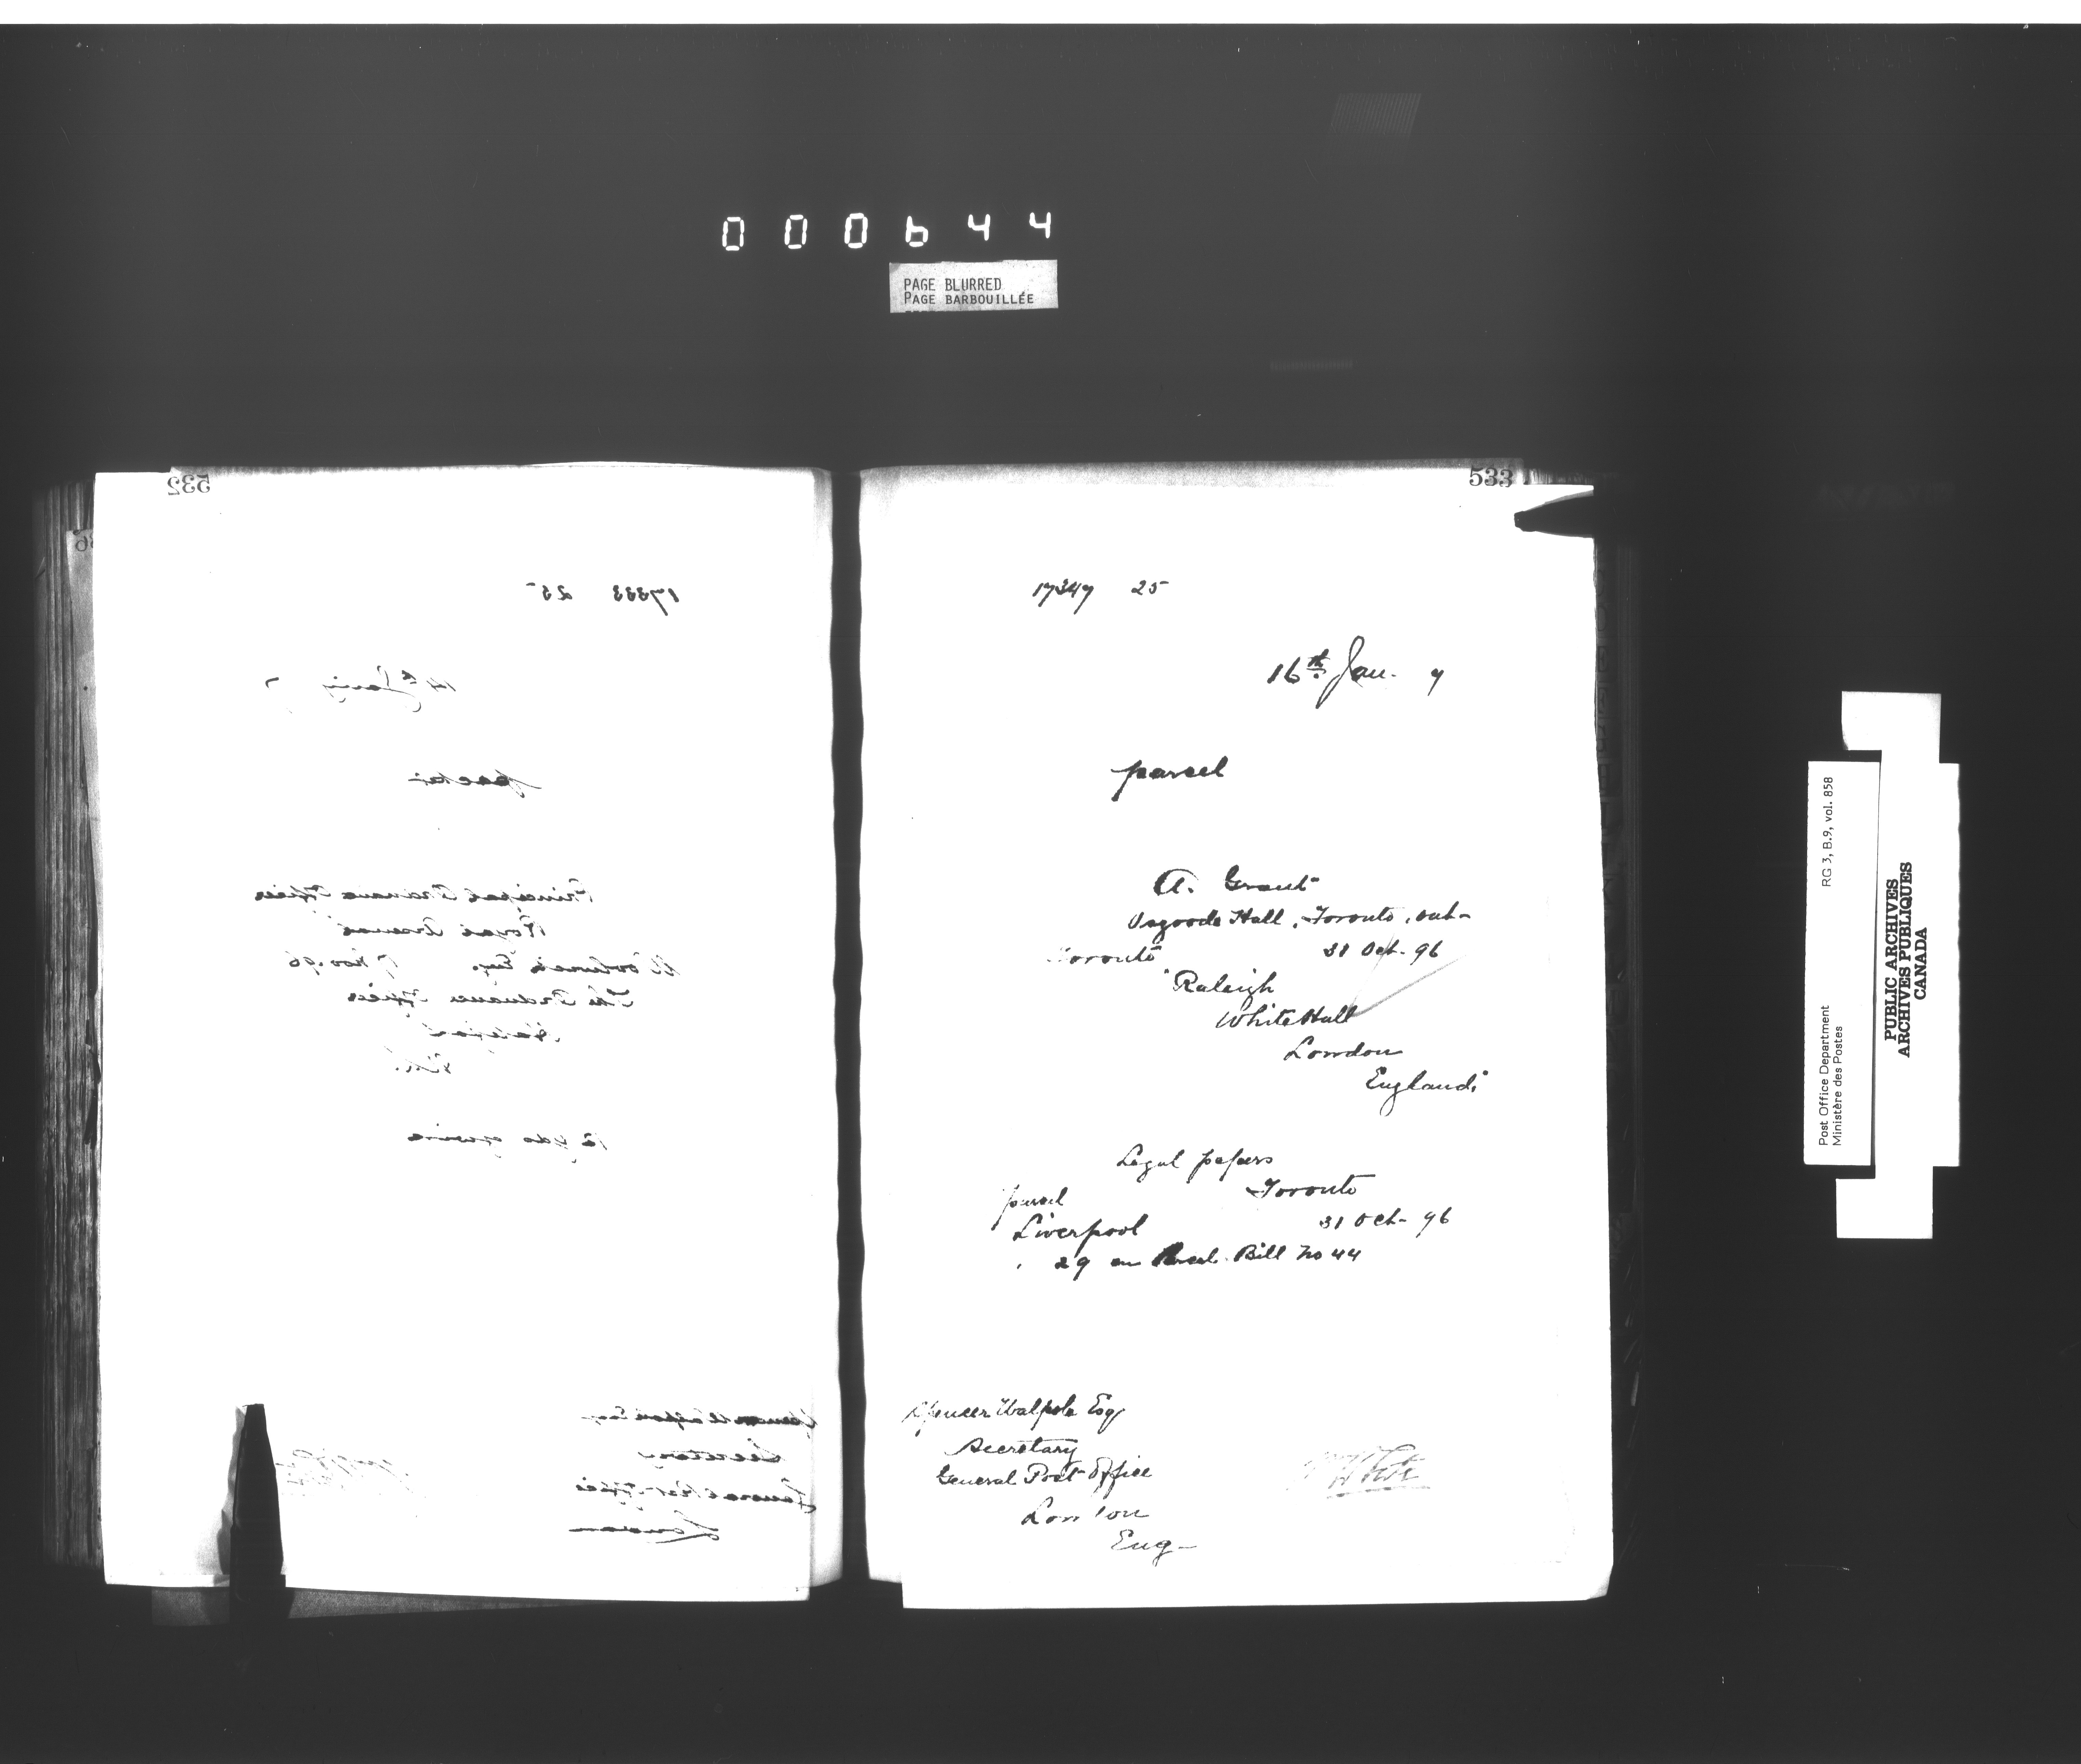 000644
PAGE BLURRED
PAGE BARBOUILLÉE
532
17333 25
14th Jany 7
packet
Principal Ordnance Officer
Royal Arsenal
Woolwich Eng. 7 Nov. 96
The Ordnance Officer
Halifax
12 yds
Spencer Walpole Esq
Secretary
General Post Office
London
533
17347 25
16th Jan. 7
parcel
A. Grant
Osgoode Hall, Toronto, Ont-
Toronto 31 Oct- 96
"Raleigh
White Hall
London
England"
Legal papers
parcel Toronto
Liverpool 31 Oct- 96
29 on Parcel Bill No 44
Spencer Walpole Esq
Secretary
General Post Office
London
Eng-
Post Office Department RG 3, B.9, vol. 858
Ministère des Postes
PUBLIC ARCHIVES
ARCHIVES PUBLIQUES
CANADA